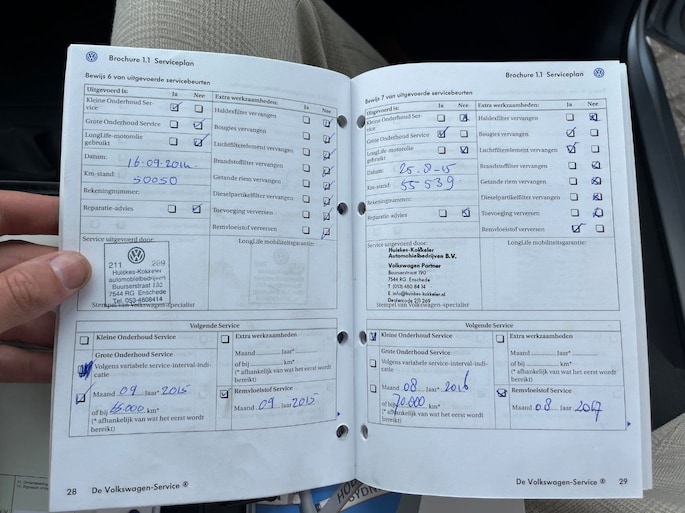 Brochure 1.1 Serviceplan
Bewijs 6 van uitgevoerde servicebeurten
Uitgevoerd is: Ja Nee
Extra werkzaamheden: Ja Nee
Kleine Onderhoud Ser-
vice
Haldexfilter vervangen
Grote Onderhoud Service
Bougies vervangen
LongLife-motorolie
gebruikt
Luchtfilterelement vervangen
Datum: 16-09-2014
Brandstoffilter vervangen
Km-stand: 50050
Getande riem vervangen
Rekeningnummer:
Dieselpartikelfilter vervangen
Reparatie-advies
Toevoeging verversen
Remvloeistof verversen
Service uitgevoerd door:
LongLife mobiliteitsgarantie:
211 269
Huiskes-Kokkeler
automobielbedrijven
Buursserstraat 192
7544 RG Enschede
Tel. 053-4808414
Stempel van Volkswagen-specialist
Volgende Service
Kleine Onderhoud Service
Extra werkzaamheden
Grote Onderhoud Service
Maand Jaar*
Volgens variabele service-interval-indi-
catie
of bij km*
(* afhankelijk van wat het eerst wordt
bereikt)
Maand 09 Jaar* 2015
Remvloeistof Service
of bij 65.000 km*
Maand 09 Jaar 2015
(* afhankelijk van wat het eerst wordt
bereikt)
28 De Volkswagen-Service ®
Brochure 1.1 Serviceplan
Bewijs 7 van uitgevoerde servicebeurten
Uitgevoerd is: Ja Nee
Extra werkzaamheden: Ja Nee
Kleine Onderhoud Ser-
vice
Haldexfilter vervangen
Grote Onderhoud Service
Bougies vervangen
LongLife-motorolie
gebruikt
Luchtfilterelement vervangen
Datum: 25-8-15
Brandstoffilter vervangen
Km-stand: 55539
Getande riem vervangen
Rekeningnummer:
Dieselpartikelfilter vervangen
Reparatie advies
Toevoeging verversen
Remvloeistof verversen
Service uitgevoerd door:
LongLife mobiliteitsgarantie:
Huiskes-Kokkeler
Automobielbedrijven B.V.
Volkswagen Partner
Buurserstraat 190
7544 RG Enschede
T (053) 480 84 14
E info@huiskes-kokkeler.nl
Dealercode 211 269
Stempel van Volkswagen-specialist
Volgende Service
Kleine Onderhoud Service
Extra werkzaamheden
Grote Onderhoud Service
Maand Jaar*
Volgens variabele service-interval-indi-
catie
of bij km*
(* afhankelijk van wat het eerst wordt
bereikt)
Maand 08 Jaar* 2016
Remvloeistof Service
of bij 70.000 km*
Maand 08 Jaar 2017
(* afhankelijk van wat het eerst wordt
bereikt)
De Volkswagen-Service ® 29